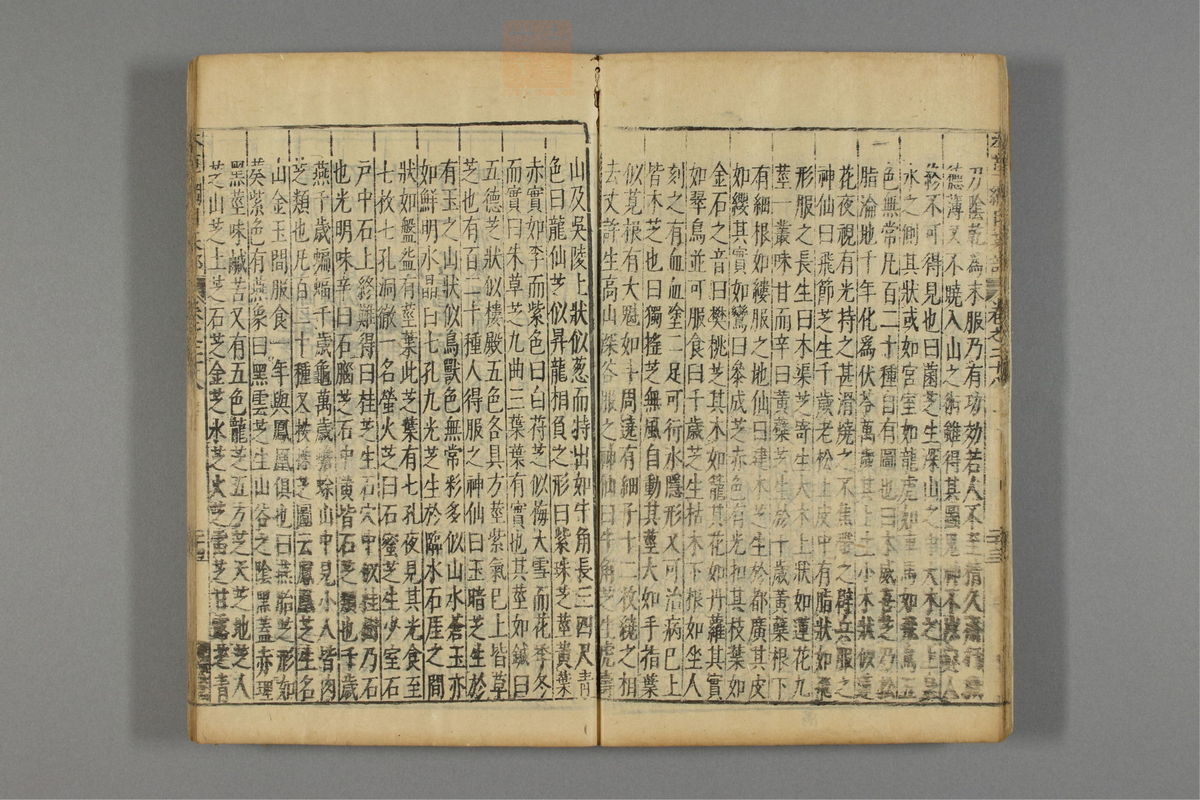 刀陰乾為末服乃有功効若人不至精久齋行穢
德薄又不曉入山之術雖得其圖鬼神不以與人
終不可得見也曰菌芝生深山之中大木之上泉
水之側其狀或如宮室如龍虎如車馬如飛鳥五
色無常凡百二十種自有圖也曰木威喜芝乃松
脂淪地千年化爲伏苓萬歲其上生小木狀似蓮
花夜視有光持之甚滑燒之不焦帶之辟兵服之
神仙曰飛節芝生千歲老松上皮中有脂狀如飛
形服之長生曰木渠芝寄生大木上狀如蓮花九
莖一叢味甘而辛曰黃蘗芝生於千歲黃蘗根下
有細根如縷服之地仙曰建木芝生於都廣其皮
如纓其實如鸞曰參成芝赤色有光扣其枝葉如
金石之音曰樊桃芝其木如籠其花如丹蘿其實
如翠鳥並可服食曰千歲芝生枯木下根如坐人
刻之有血血塗二足可行水隱形又可治病已上
皆木芝也曰獨搖芝無風自動其莖大如手指葉
似莧根有大魁如斗周遶有細子十二枚繞之相
去丈許生高山深谷服之神仙曰牛角芝生虎壽
山及吳陵上狀似葱而特出如牛角長三四尺青
色曰龍仙芝似昇龍相負之形曰紫珠芝莖黃葉
赤實如李而紫色曰白苻芝似梅大雪而花季冬
而實曰朱草芝九曲三葉葉有實也其莖如鍼曰
五德芝狀似樓殿五色各具方莖紫氣已上皆草
芝也有百二十種人得服之神仙曰玉暗芝生於
有玉之山狀似鳥獸色無常彩多似山水蒼玉亦
如鮮明水晶曰七孔九光芝生於臨水石厓之間
狀如盤盌有莖葉此芝葉有七孔夜見其光食至
七枚七孔洞徹一名螢火芝曰石蜜芝生少室石
戸中石上終難得曰桂芝生石穴中似桂樹乃石
也光明味辛曰石腦芝石中黃皆石芝類也千歲
燕千歲蝙蝠千歲龜萬歲蟾蜍山中見小人皆肉
芝類也凡百二十種又按採芝圖云鳳凰芝生名
山金玉間服食一年與鳳凰俱也曰燕胎芝形如
葵紫色有燕象曰黑雲芝生山谷之陰黑蓋赤理
黑莖味鹹苦又有五色龍芝五方芝天芝地芝人
芝山芝土芝石芝金芝水芝火芝雷芝甘露芝青